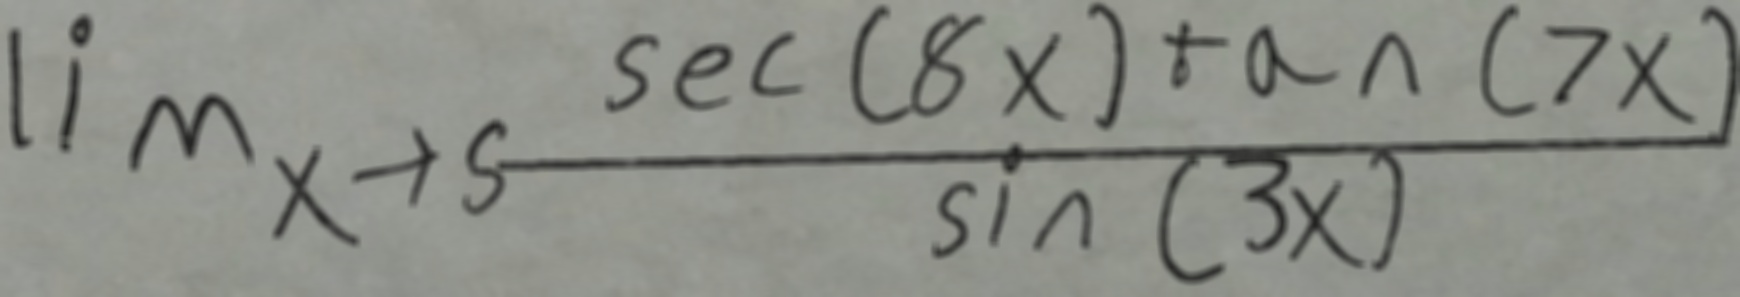 \lim_{x \to 5} \frac{\sec(8x)\tan(7x)}{\sin(3x)}